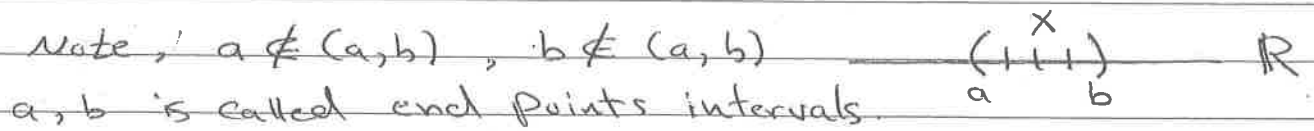 Note, a ∉ (a,b) , b ∉ (a,b) x ( ) ℝ
a, b is called end points intervals. a b